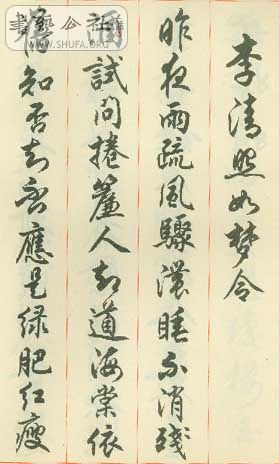 李清照如梦令
昨夜雨疏風驟濃睡不消殘
試問捲簾人却道海棠依
知否知否應是绿肥红瘦
書藝公社
WWW.SHUFA.ORG